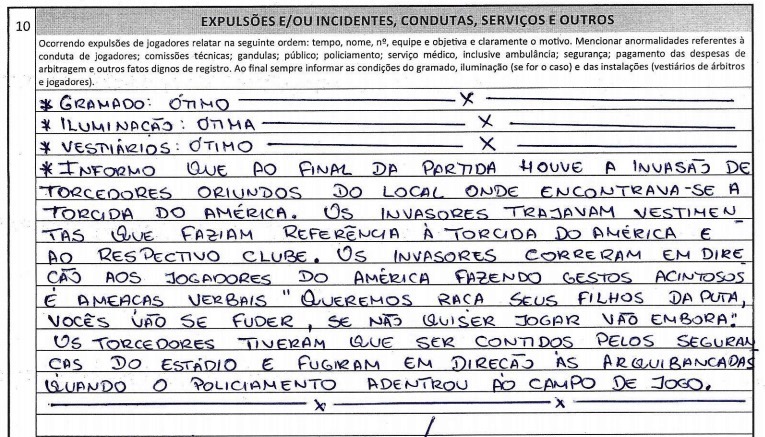 10
EXPULSÕES E/OU INCIDENTES, CONDUTAS, SERVIÇOS E OUTROS
Ocorrendo expulsões de jogadores relatar na seguinte ordem: tempo, nome, nº, equipe e objetiva e claramente o motivo. Mencionar anormalidades referentes à
conduta de jogadores; comissões técnicas; gandulas; público; policiamento; serviço médico, inclusive ambulância; segurança; pagamento das despesas de
arbitragem e outros fatos dignos de registro. Ao final sempre informar as condições do gramado, iluminação (se for o caso) e das instalações (vestiários de árbitros
e jogadores).
* GRAMADO: ÓTIMO X
* ILUMINAÇÃO: ÓTIMA X
* VESTIÁRIOS: ÓTIMO X
* INFORMO QUE AO FINAL DA PARTIDA HOUVE A INVASÃO DE
TORCEDORES ORIUNDOS DO LOCAL ONDE ENCONTRAVA-SE A
TORCIDA DO AMÉRICA. OS INVASORES TRAJAVAM VESTIMEN
TAS QUE FAZIAM REFERÊNCIA À TORCIDA DO AMÉRICA E
AO RESPECTIVO CLUBE. OS INVASORES CORRERAM EM DIRE
ÇÃO AOS JOGADORES DO AMÉRICA FAZENDO GESTOS ACINTOSOS
E AMEAÇAS VERBAIS "QUEREMOS RAÇA SEUS FILHOS DA PUTA,
VOCÊS VÃO SE FUDER, SE NÃO QUISER JOGAR VÃO EMBORA."
OS TORCEDORES TIVERAM QUE SER CONTIDOS PELOS SEGURAN
ÇAS DO ESTÁDIO E FUGIRAM EM DIREÇÃO ÀS ARQUIBANCADAS
QUANDO O POLICIAMENTO ADENTROU AO CAMPO DE JOGO.
X X